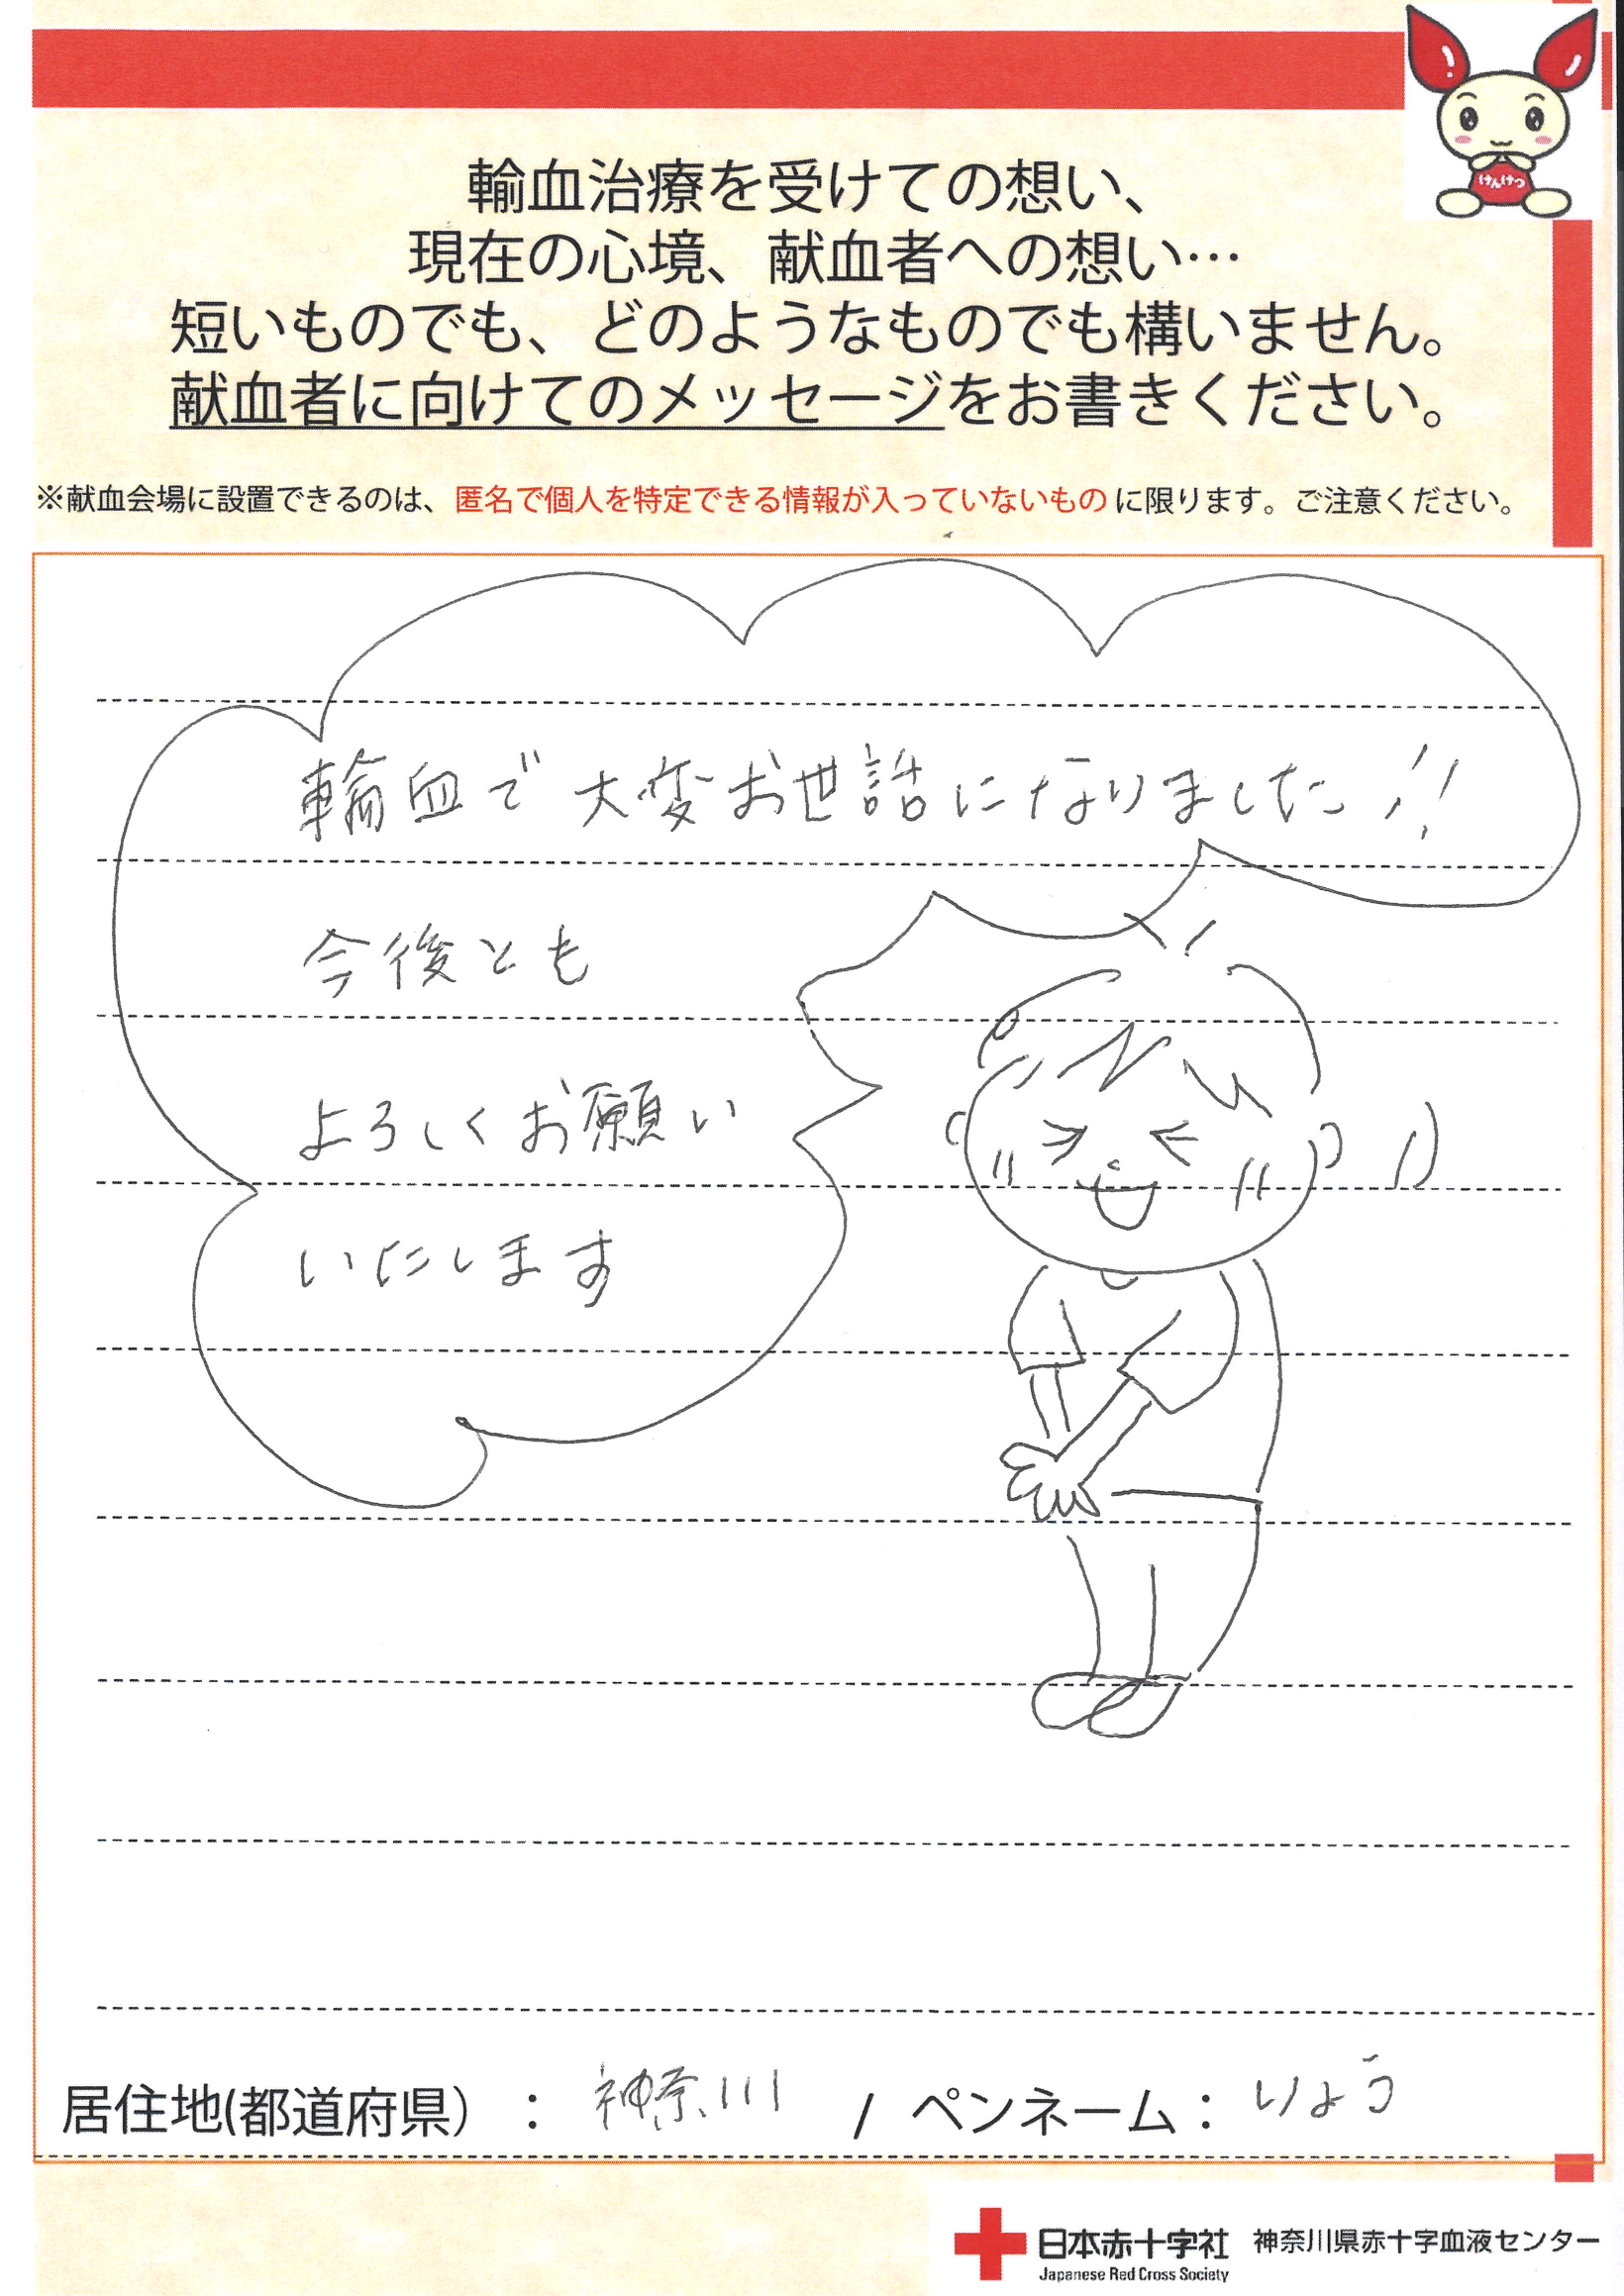 けんけつ
輸血治療を受けての想い、
現在の心境、献血者への想い…
短いものでも、どのようなものでも構いません。
献血者に向けてのメッセージをお書きください。
※献血会場に設置できるのは、匿名で個人を特定できる情報が入っていないものに限ります。ご注意ください。
輸血で大変お世話になりました!!
今後とも
よろしくお願い
いたします
居住地(都道府県) : 神奈川 / ペンネーム : りょう
日本赤十字社 神奈川県赤十字血液センター
Japanese Red Cross Society